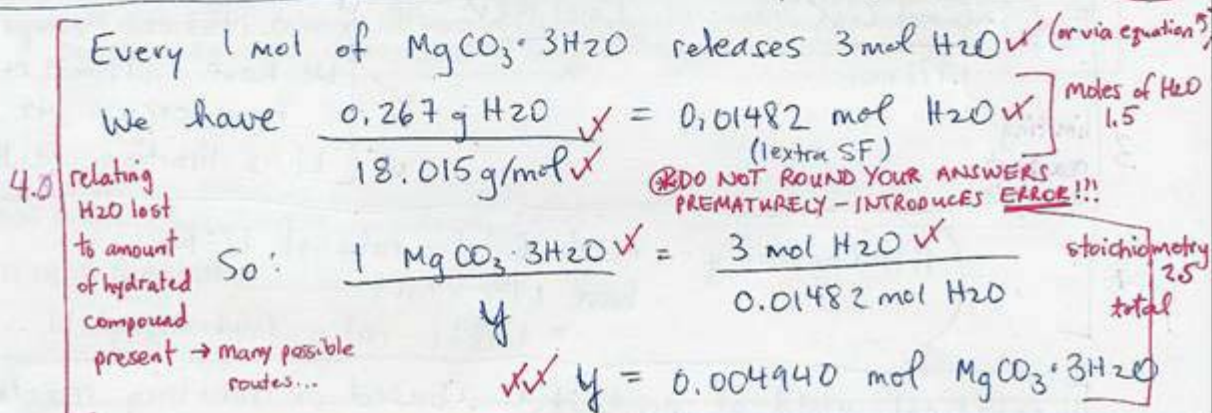 Every 1 mol of MgCO3·3H2O releases 3 mol H2O ✓ (or via equations)
We have 0.267 g H2O ✓ = 0.01482 mol H2O ✓
18.015 g/mol ✓
(1 extra SF)
moles of H2O
1.5
⊛ DO NOT ROUND YOUR ANSWERS
PREMATURELY - INTRODUCES ERROR!!!
4.0
relating
H2O lost
to amount
of hydrated
compound
present → many possible
routes...
So: 1 MgCO3·3H2O ✓ = 3 mol H2O ✓
y 0.01482 mol H2O
stoichiometry
2.5
total
✓✓ y = 0.004940 mol MgCO3·3H2O